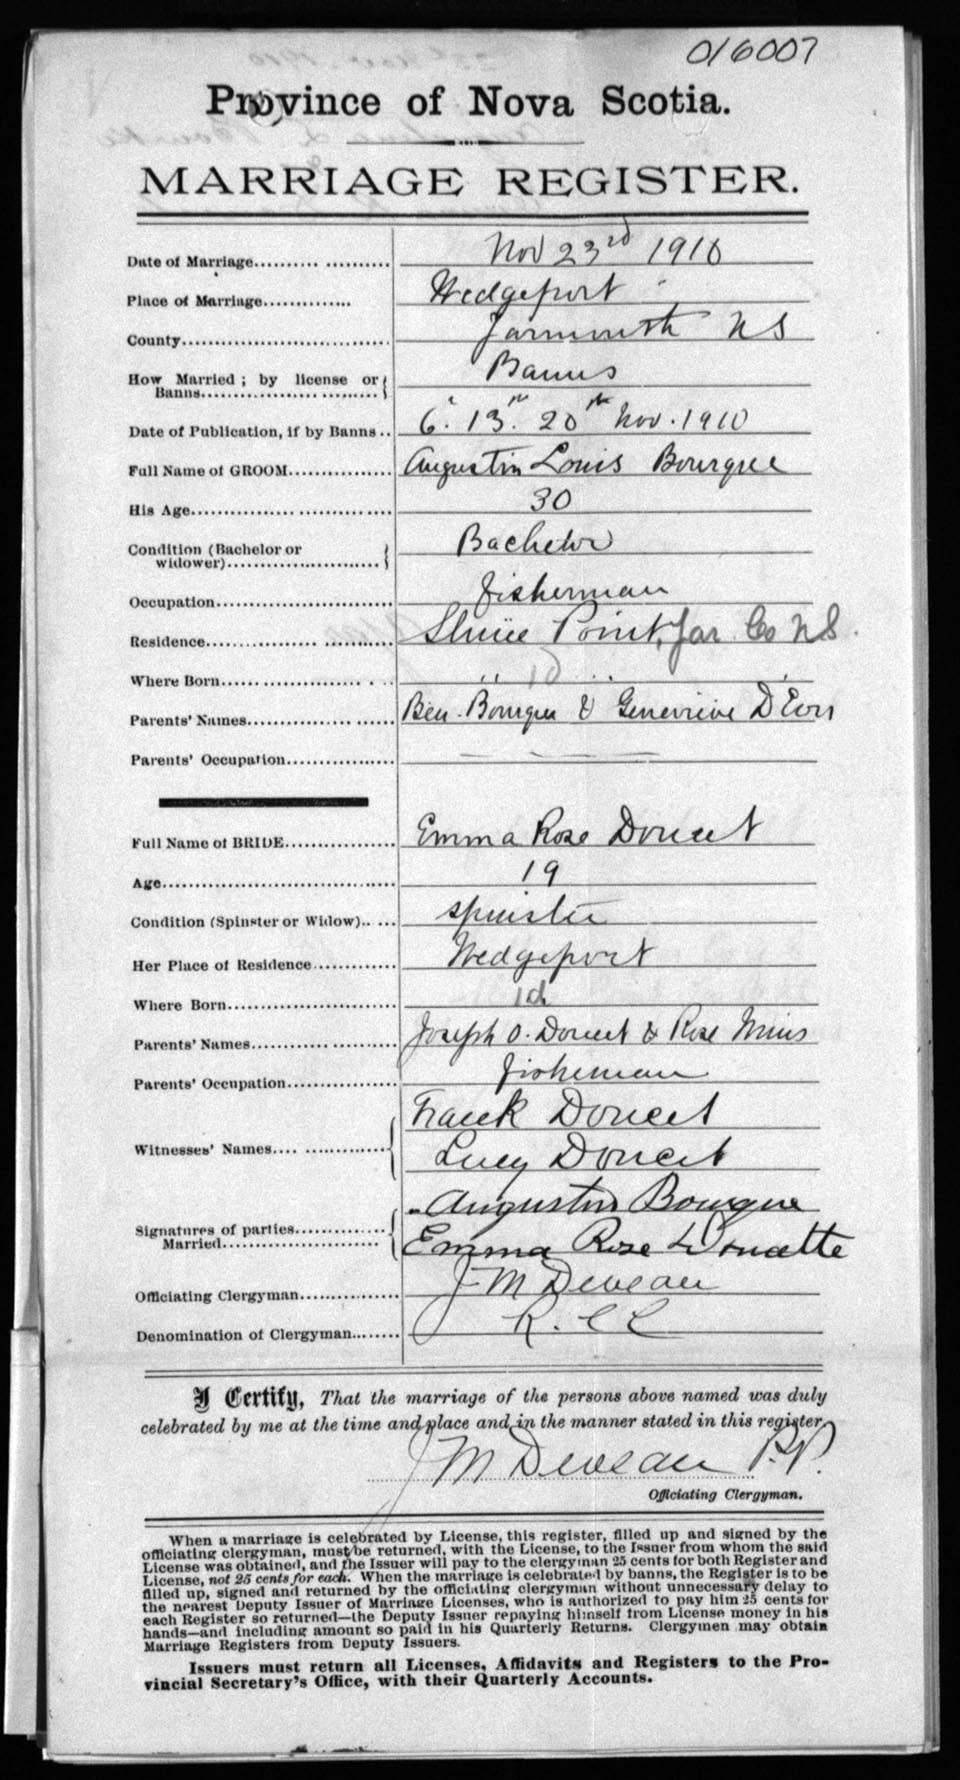 016007
Province of Nova Scotia.
MARRIAGE REGISTER.
Date of Marriage.................... Nov 23rd 1910
Place of Marriage............. Wedgeport
County................................ Yarmouth NS
How Married ; by license or Banns.................... Banns
Date of Publication, if by Banns.. 6. 13th. 20th Nov. 1910
Full Name of GROOM............... Augustin Louis Bourque
His Age............................ 30
Condition (Bachelor or widower)....................... Bachelor
Occupation........................... fisherman
Residence........................... Sluice Point, Yar. Co NS.
Where Born....................... " id "
Parents' Names..................... Ben. Bourque & Genevieve D'Eon
Parents' Occupation................ — — —
Full Name of BRIDE................ Emma Rose Doucet
Age.................................. 19
Condition (Spinster or Widow)..... spinster
Her Place of Residence............ Wedgeport
Where Born........................ id
Parents' Names.................... Joseph O. Doucet & Rose Mius
Parents' Occupation............... fisherman
Witnesses' Names.... ............ Frank Doucet
Lucy Doucet
Signatures of parties Married....................... Augustin Bourque
Emma Rose Doucette
Officiating Clergyman.............. J M Deveau
Denomination of Clergyman........ R. C C
I Certify, That the marriage of the persons above named was duly
celebrated by me at the time and place and in the manner stated in this register.
J M Deveau P.P.
Officiating Clergyman.
When a marriage is celebrated by License, this register, filled up and signed by the
officiating clergyman, must be returned, with the License, to the Issuer from whom the said
License was obtained, and the Issuer will pay to the clergyman 25 cents for both Register and
License, not 25 cents for each. When the marriage is celebrated by banns, the Register is to be
filled up, signed and returned by the officiating clergyman without unnecessary delay to
the nearest Deputy Issuer of Marriage Licenses, who is authorized to pay him 25 cents for
each Register so returned—the Deputy Issuer repaying himself from License money in his
hands—and including amount so paid in his Quarterly Returns. Clergymen may obtain
Marriage Registers from Deputy Issuers.
Issuers must return all Licenses, Affidavits and Registers to the Pro-
vincial Secretary's Office, with their Quarterly Accounts.